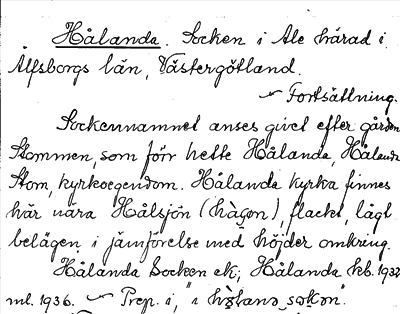 Hålanda. Socken i Ale härad i
Älfsborgs län, Västergötland.
~ Fortsättning.
Sockennamnet anses givet efter gården
Stommen, som förr hette Hålanda, Hålanda
Stom, kyrkoegendom. Hålanda kyrka finnes
här nära Hålsjön (hàʒon), flackt, lågt
belägen i jämförelse med höjder omkring.
Hålanda Socken ek; Hålanda kb. 1932
ml. 1936. ~ Prep. i, "i